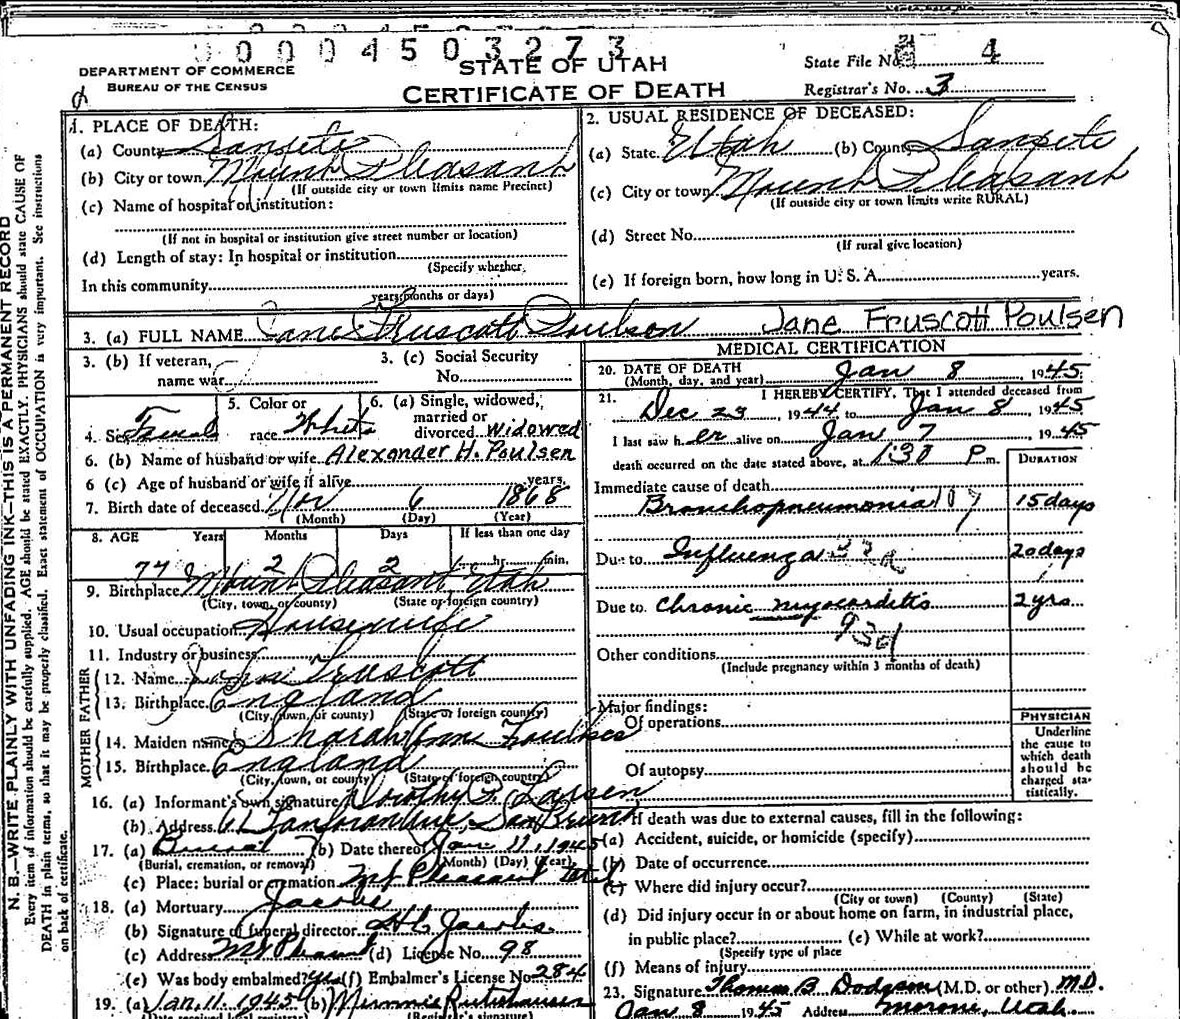 0004503273
DEPARTMENT OF COMMERCE
BUREAU OF THE CENSUS
STATE OF UTAH
CERTIFICATE OF DEATH
State File No. 4
Registrar's No. 3
N. B.—WRITE PLAINLY WITH UNFADING INK—THIS IS A PERMANENT RECORD
Every item of information should be carefully supplied. AGE should be stated EXACTLY. PHYSICIANS should state CAUSE OF
DEATH in plain terms, so that it may be properly classified. Exact statement of OCCUPATION is very important. See instructions
on back of certificate.
1. PLACE OF DEATH:
(a) County Sanpete
(b) City or town Mount Pleasant
(If outside city or town limits name Precinct)
(c) Name of hospital or institution:
(If not in hospital or institution give street number or location)
(d) Length of stay: In hospital or institution
(Specify whether
In this community
years, months or days)
2. USUAL RESIDENCE OF DECEASED:
(a) State Utah (b) County Sanpete
(c) City or town Mount Pleasant
(If outside city or town limits write RURAL)
(d) Street No.
(If rural give location)
(e) If foreign born, how long in U. S. A. years.
3. (a) FULL NAME Jane Fruscott Poulsen Jane Fruscott Poulsen
3. (b) If veteran,
name war
3. (c) Social Security
No.
4. Sex Female
5. Color or
race White
6. (a) Single, widowed,
married or
divorced Widowed
6. (b) Name of husband or wife Alexander H. Poulsen
6 (c) Age of husband or wife if alive years.
7. Birth date of deceased Nov 6 1868
(Month) (Day) (Year)
8. AGE Years Months Days If less than one day
77 2 2 hr. min.
9. Birthplace Mount Pleasant, Utah
(City, town, or county) (State or foreign country)
10. Usual occupation Housewife
11. Industry or business
FATHER
12. Name John Fruscott
13. Birthplace England
(City, town, or county) (State or foreign country)
MOTHER
14. Maiden name Sharah Ann Foulkes
15. Birthplace England
(City, town, or county) (State of foreign country)
16. (a) Informant's own signature Dorothy P. Larsen
(b) Address San Bruno
17. (a) Burial (b) Date thereof Jan 11, 1945
(Burial, cremation, or removal) (Month) (Day) (Year)
(c) Place: burial or cremation Mt Pleasant Utah
18. (a) Mortuary Jacobs
(b) Signature of funeral director Jacobs
(c) Address Mt Pleasant (d) License No. 98
(e) Was body embalmed? Yes (f) Embalmer's License No 284
19. (a) Jan. 11. 1945 (b) Minnie
(Date received local registrar) (Registrar's signature)
MEDICAL CERTIFICATION
20. DATE OF DEATH
(Month, day, and year) Jan 8 1945
21. I HEREBY CERTIFY, That I attended deceased from
Dec 23, 1944 to Jan 8, 1945
I last saw her alive on Jan 7, 1945
death occurred on the date stated above, at 1:30 P m.
DURATION
Immediate cause of death
Bronchopneumonia 107 15 days
Due to Influenza 20 days
Due to Chronic myocarditis 2 yrs
93d
Other conditions
(Include pregnancy within 3 months of death)
Major findings:
Of operations
Of autopsy
PHYSICIAN
Underline
the cause to
which death
should be
charged sta-
tistically.
If death was due to external causes, fill in the following:
(a) Accident, suicide, or homicide (specify)
(b) Date of occurrence
(c) Where did injury occur?
(City or town) (County) (State)
(d) Did injury occur in or about home on farm, in industrial place,
in public place? (e) While at work?
(Specify type of place
(f) Means of injury
23. Signature Thomas B. Dodgson (M.D. or other) M.D.
Jan 8 1945 Address Moroni, Utah